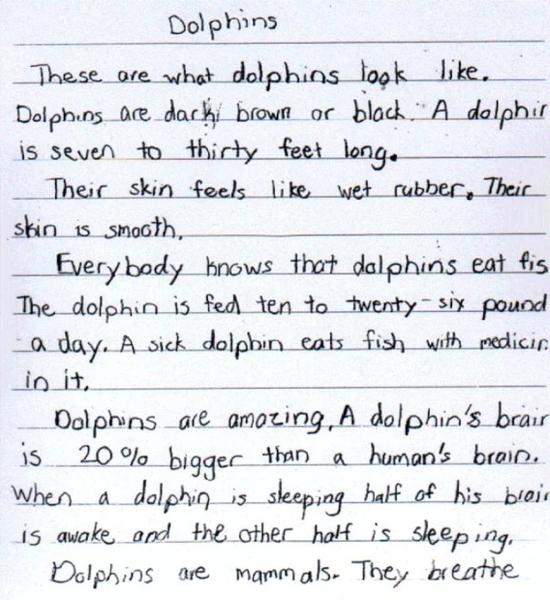 Dolphins
These are what dolphins look like.
Dolphins are dark brown or black. A dolphin
is seven to thirty feet long.
Their skin feels like wet rubber. Their
skin is smooth.
Everybody knows that dolphins eat fis
The dolphin is fed ten to twenty-six pound
a day. A sick dolphin eats fish with medicin
in it.
Dolphins are amazing. A dolphin's brain
is 20% bigger than a human's brain.
When a dolphin is sleeping half of his brain
is awake and the other half is sleeping.
Dolphins are mammals. They breathe